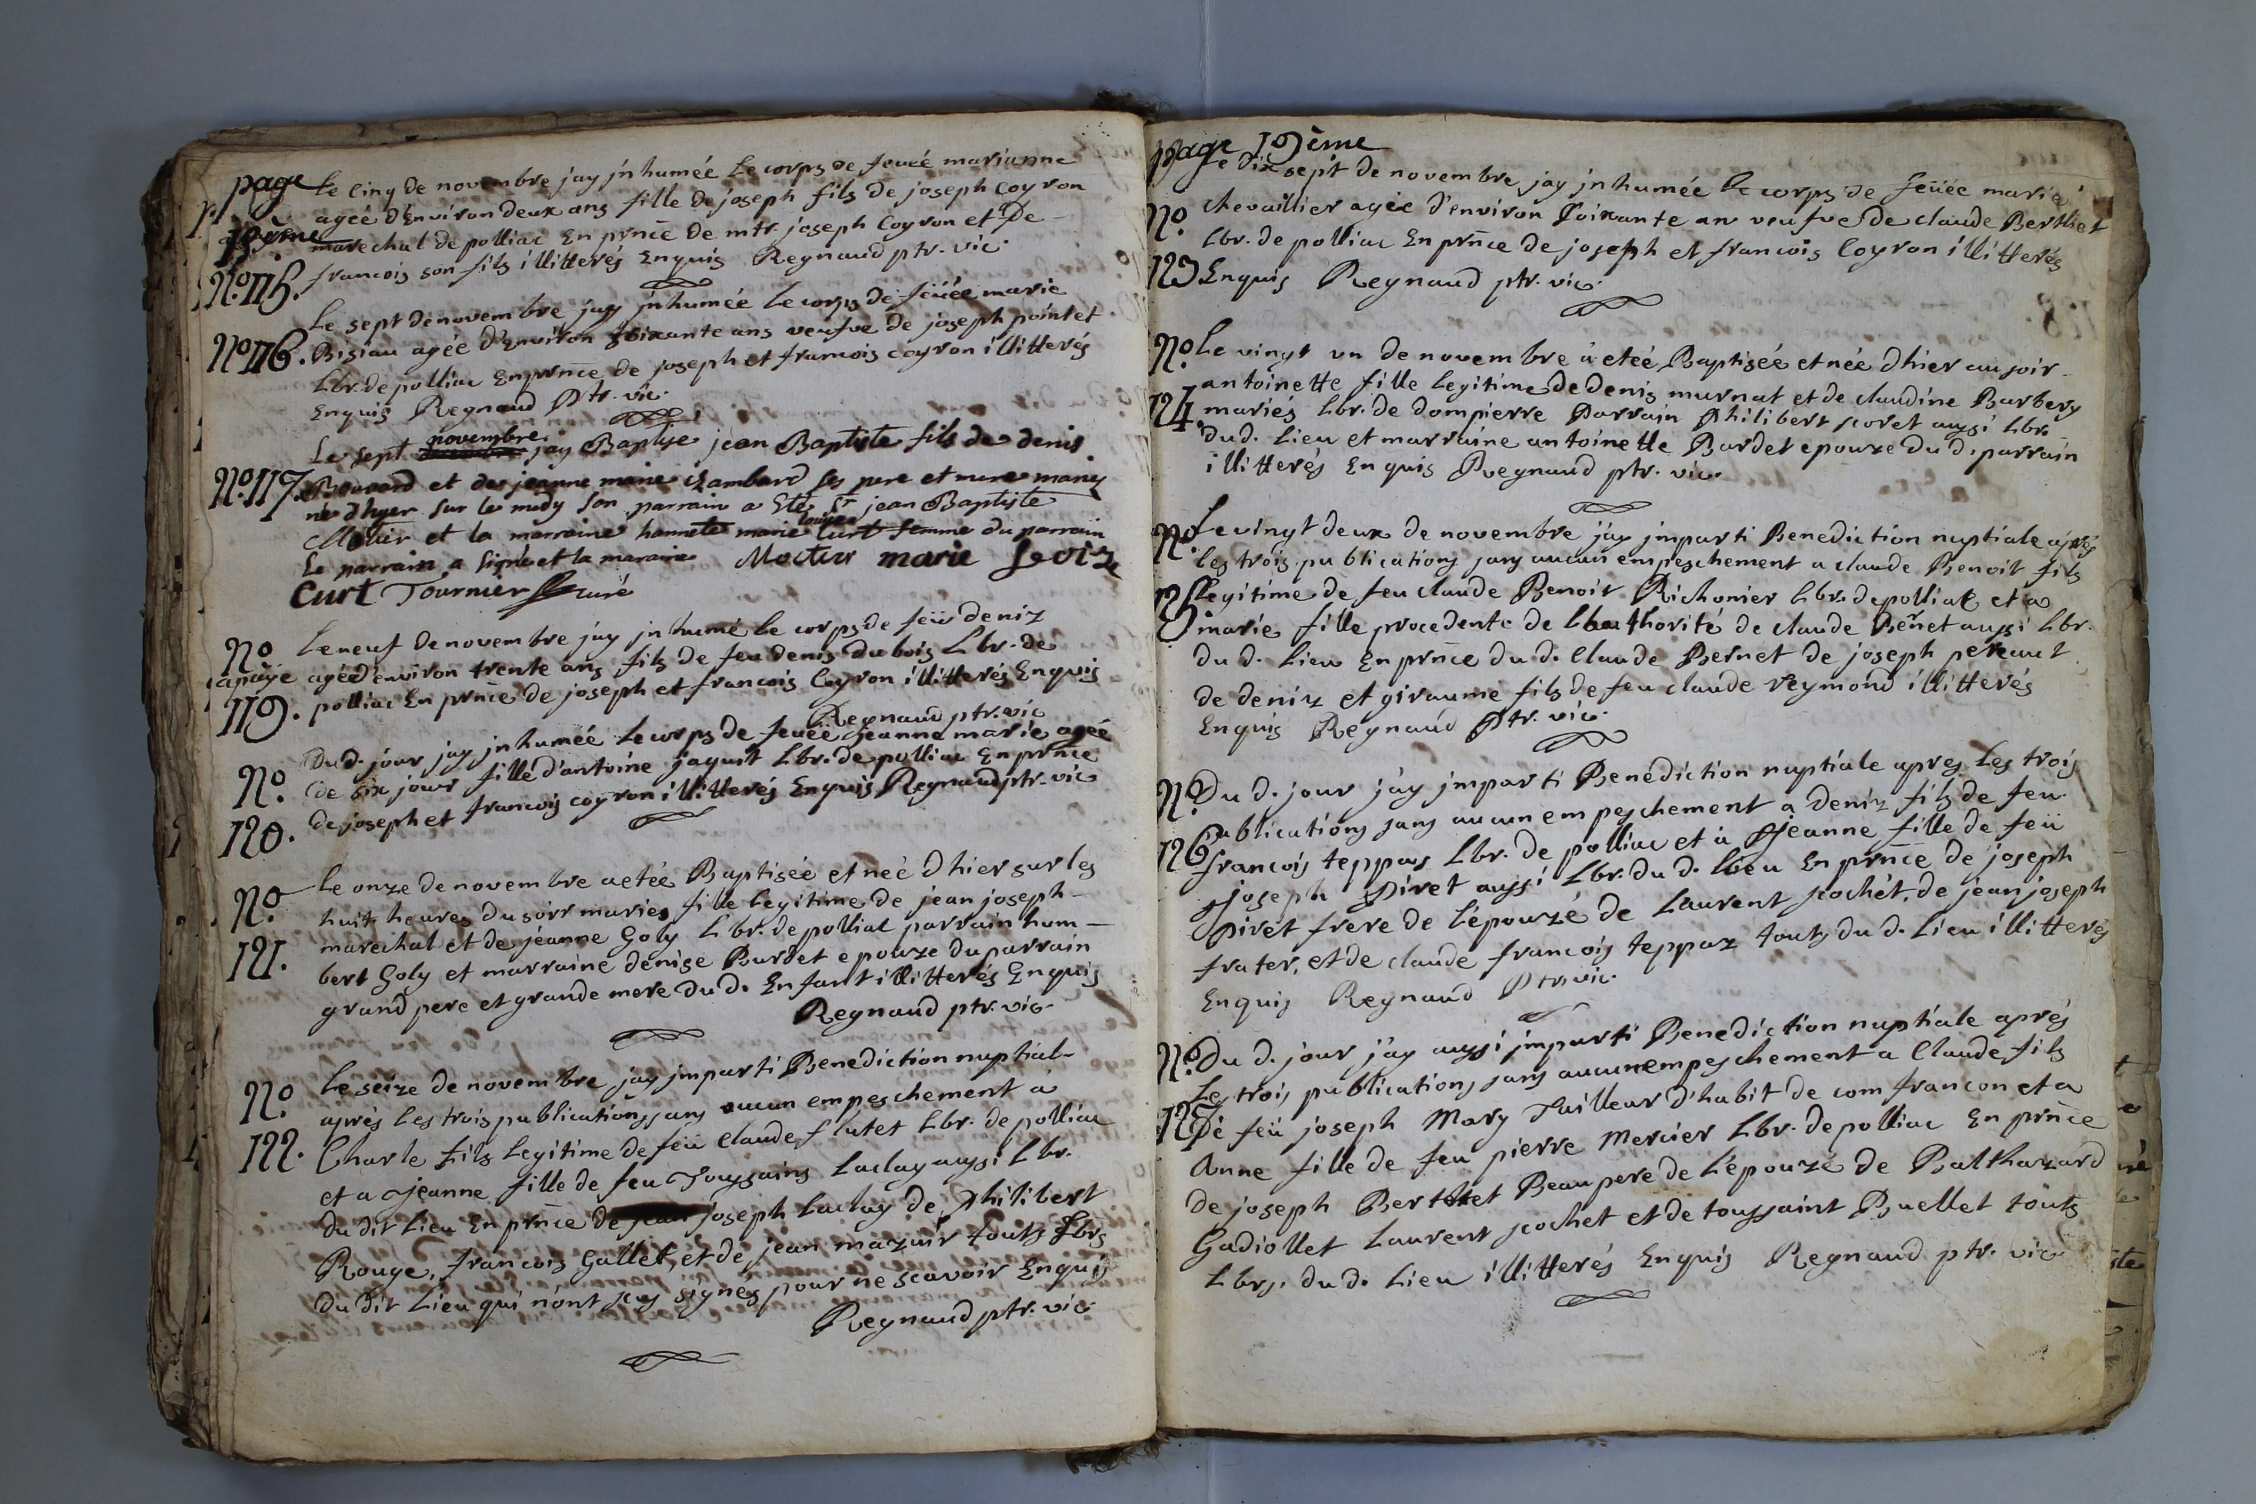 page Le cinq de novembre jay jnhumée Le corps de feuée marianne
18ème agée d'Environ deux ans fille de joseph fils de joseph Coyron
marechal de polliac En prñce De mtr. joseph Coyron et De
No 115. francois son fils illitterés Enquis Regnaud ptr. vic.
Le sept de novembre jay jnhumée Le corps de feüée marie
No 116. Bisiau agée d'Environ soixante ans veufve de joseph pointet
Lbr. de polliac En prnce de joseph et francois coyron illitterés
Enquis Regnaud Ptr. vic.
novembre
Le sept jay Baptise jean Baptiste fils de denis
No 117. Bouvard et de jeanne marie Chambard ses pere et mere mariés
né dhyer sur le midy son parrain a Eté Sr jean Baptiste
louise
et la marraine hannete marie Curt femme du parrain
Le parrain a signé et la maraine marie Lovize
Curt Tournier curé
No Le neuf de novembre jay jnhumé le corps de feü deniz
agée d'environ trente ans fils de feu denis dubois Lbr. de
119. polliac En prnce de joseph et francois Coyron illitterés Enquis
Regnaud ptr. vic
Du d. jour jay jnhumée Le corps de feuée jeanne marie agée
No. de six jours fille d'antoine jaquet Lbr. de polliac En prnce
120. de joseph et francois coyron illitterés Enquis Regnaud ptr. vic
Le onze de novembre a etée Baptisée et neé d hier sur les
No. huit heures du soirr marie fille legitime de jean joseph
marechal et de jeanne Goly Lbr. de polliat parrain hum-
121. bert Goly et marraine denise Pourdet epouze du parrain
grand pere et grande mere du d. Enfant illitterés Enquis
Regnaud ptr. vic.
No. Le seize de novembre jay jmparti Benediction nuptial-
aprés Les trois publications sans aucun empeschement a
122. Charle fils legitime de feü Claude flutet Lbr. de polliac
et a jeanne fille de feu Toussains Laclay aussi Lbr.
du dit Lieu En prnce de joseph Laclay de Philibert
Rouge, francois Gallet, et de jean mazuir touts Lbrs
du dit Lieu qui n'ont sçu signes pour ne scavoir Enquis
Regnaud ptr. vic.
page 19ème
Le dix sept de novembre jay jnhumée le corps de feüée marie
No. chevaillier agée d'environ soixante an veufve de claude Berthet
Lbr. de polliac En prñce de joseph et francois Coyron illitterés
123 Enquis Regnaud ptr. vic.
No. Le vingt vn de novembre à eteé Baptiseé et née d hier au soir
antoinette fille legitime de denis murnat et de claudine Barbery
124. mariés Lbr. de dompierre Parrain Philibert scoret aussi Lbr.
du d. Lieu et marraine antoinette Bardet epouze du d. parrain
illitterés Enquis Regnaud ptr. vic.
No. Le vingt deux de novembre j'ay jmparti Benediction nuptiale aprés
les trois publications sans aucun empeschement a claude Benoit fils
125 legitime de feu claude Benoit Pichonier Lbr. de polliat et a
marie fille procedente de Lauthorité de claude Bernet aussi Lbr.
du d. Lieu En prñce du d. Claude Bernet de joseph perraut
de deniz et giraume fils de feu claude Reymond illitterés
Enquis Regnaud Ptr. vic.
No. Du d. jour j'ay jmparti Benédiction nuptiale apres Les trois
publications sans aucun empeschement a deniz fils de feu
126 francois teppas Lbr. de polliac et à jeanne fille de feü
joseph Piret aussi Lbr. du d. lieu En prñce de joseph
Piret frere de l'epouzé de Laurent scochet, de jean joseph
frater, et de claude francois teppaz touts du d. Lieu illitterés
Enquis Regnaud Ptr. vic.
No. Du d. jour j'ay aussi jmparti Benediction nuptiale aprés
Les trois publications sans aucun empeschement a Claude fils
127 De feü joseph Mary Tailleur d'habit de com francon et a
Anne fille de feu pierre Mercier Lbr. de polliac En prñce
de joseph Berthet Beaupere de L'epouzé de Balthazard
Gadiollet Laurent scochet et de toussaint Buellet touts
Lbrs. du d. Lieu illitterés Enquis Regnaud ptr. vic